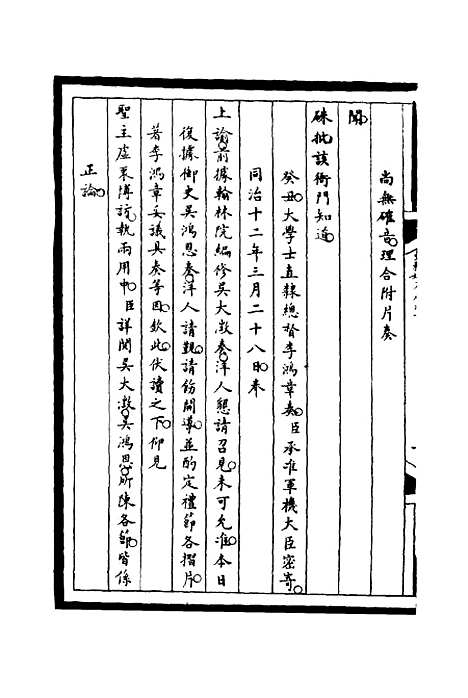 尚無確音。理合附片奏
聞。
硃批該衙門知道。
癸丑。大學士直隸總督李鴻章奏。臣承准軍機大臣密寄。
同治十二年三月二十八日。奉
上諭。前據翰林院編修吳大澂奏。洋人懇請召見。未可允准。本日
復據御史吳鴻恩奏。洋人請覲。請飭開導。並酌定禮節各摺片。
著李鴻章妥議具奏等因。欽此。伏讀之下。仰見
聖主虛衷博訪。執兩用中。臣詳閱吳大澂。吳鴻恩。所陳各節。皆係
正論。